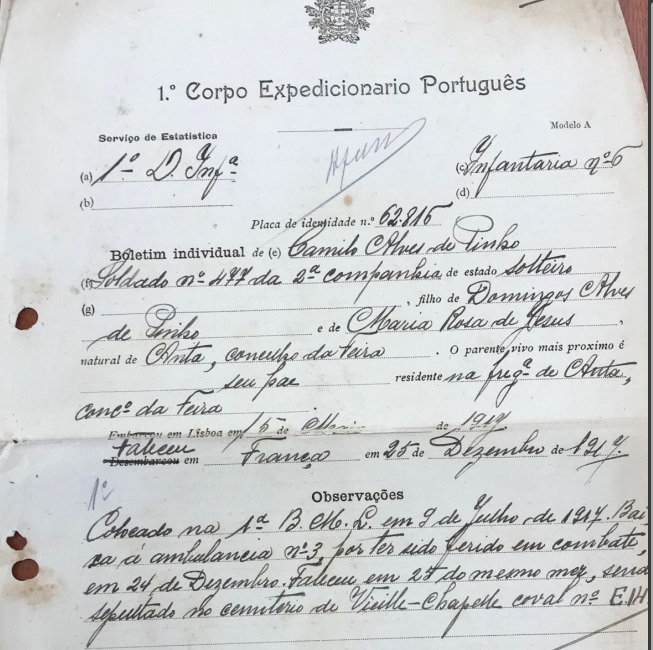 1.º Corpo Expedicionario Português
Serviço de Estatistica
Modelo A
(a) 1º D. Infª
(c) Infantaria nº 6
(b)
(d)
Placa de identidade n.º 62.816
Boletim individual de (e) Camilo Alves de Pinho
(f) Soldado nº 477 da 2ª companhia de estado solteiro
(g) , filho de Domingos Alves
de Pinho e de Maria Rosa de Jesus ,
natural de Anta, concelho da Feira . O parente vivo mais proximo é
seu pae residente na fregª de Anta,
concº da Feira
Embarcou em Lisboa em 15 de de 1917
Faleceu
Desembarcou em França em 25 de Dezembro de 1917.
1º
Observações
Colocado na 1ª B. M. L. em 9 de Julho de 1917. Bai-
xa á ambulancia nº 3, por ter sido ferido em combate,
em 24 de Dezembro. Faleceu em 25 do mesmo mez, send
sepultado no cemiterio de Vieille-Chapelle coval nº